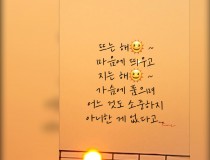 뜨는 해🌞~
마음에 띄우고
지는 해🌞~
가슴에 품으며
어느 것도 소중하지
아니한 게 없다고...